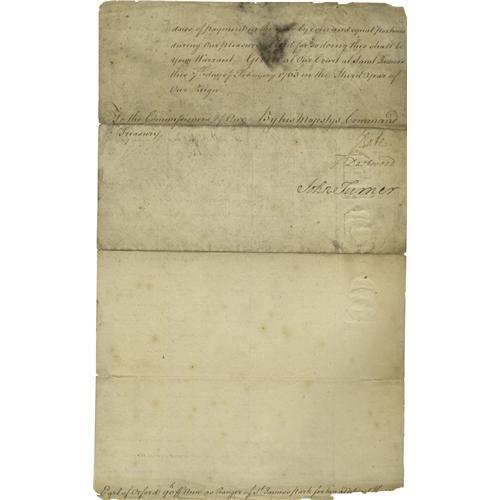 days of payment in the year by even and equal Portions
during Our pleasure And for so doing this shall be
Your Warrant Given at Our Court at Saint James's
this 7 day of February 1763 in the Third Year of
Our Reign.
To the Commissioners of Our By his Majestys Command
Treasury
Bute
F Dashwood
John Turner
Earl of Orford as Ranger of St James's Park for